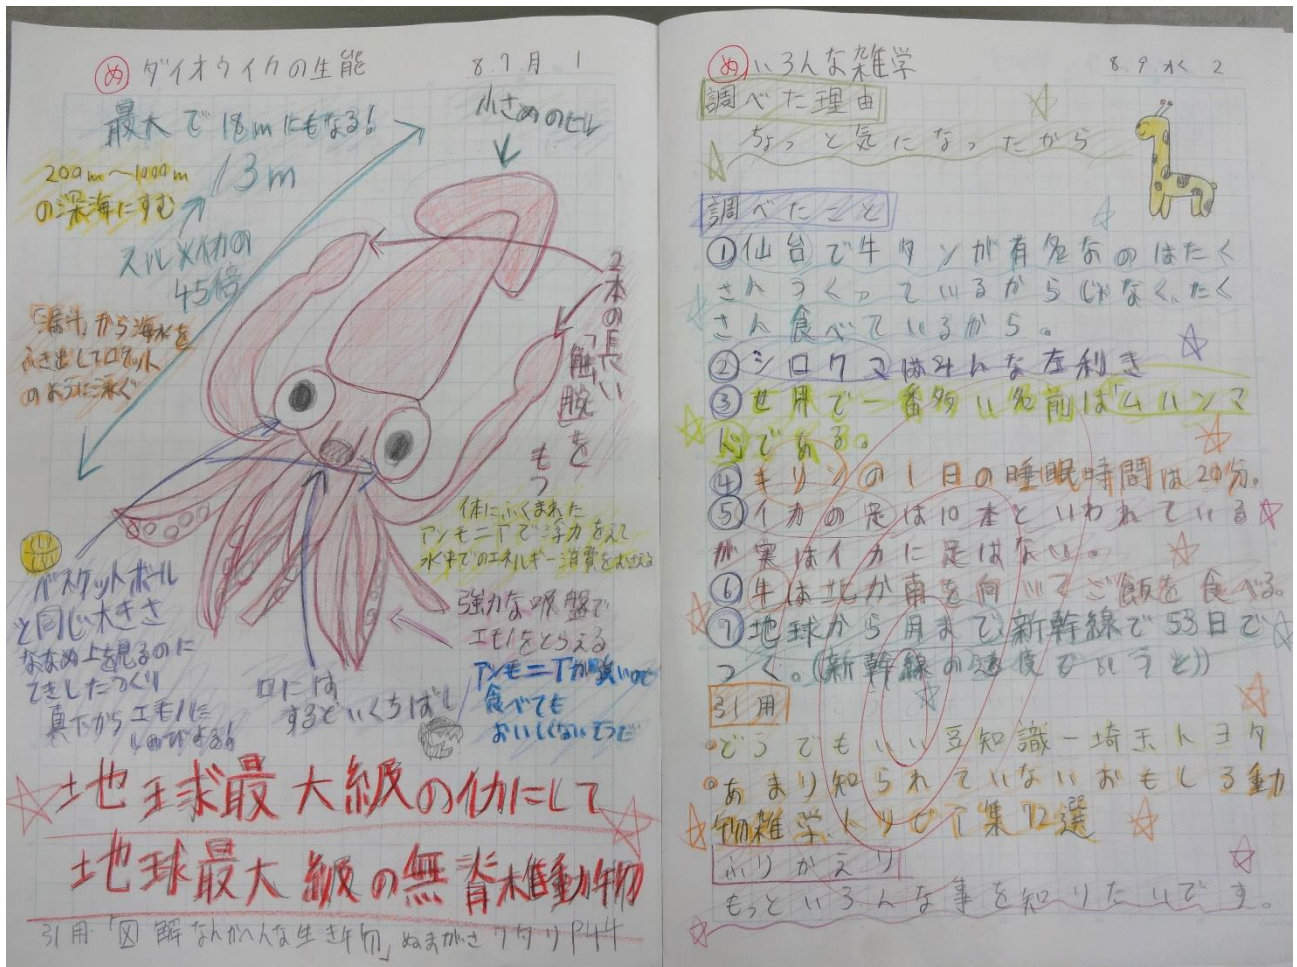 め ダイオウイカの生能 8.7月 1
最大で18mにもなる!
小さめのビル
13m
200m〜1000m
の深海にすむ
スルメイカの
45倍
「漏斗」から海水を
ふき出してロケット
のように泳ぐ
2本の長い
「触腕」を
もつ
体にふくまれた
アンモニアで浮力をえて
水中でのエネルギー消費をおさえる
バスケットボール
と同じ大きさ
ななめ上を見るのに
てきしたつくり
真下からエモノに
しのびよる!
口には
するどいくちばし
強力な吸盤で
エモノをとらえる
アンモニアが強いので
食べても
おいしくないそうだ
地球最大級のイカにして
地球最大級の無脊椎動物
引用「図解なんかへんな生き物」ぬまがさワタリP44
め いろんな雑学 8.9水 2
調べた理由
ちょっと気になったから
調べたこと
①仙台で牛タンが有名なのはたく
さんつくっているからじゃなく、たく
さん食べているから。
②シロクマはみんな左利き
③世界で一番多い名前は「ムハンマ
ド」である。
④キリンの1日の睡眠時間は20分。
⑤イカの足は10本といわれている
が実はイカに足はない。
⑥牛は北か南を向いてご飯を食べる。
⑦地球から月まで、新幹線で53日で
つく。(新幹線の速度でいうと))
引用
・どうでもいい豆知識ー埼玉トヨタ
・あまり知られていないおもしろ動
物雑学.トリビア集72選
ふりかえり
もっといろんな事を知りたいです。